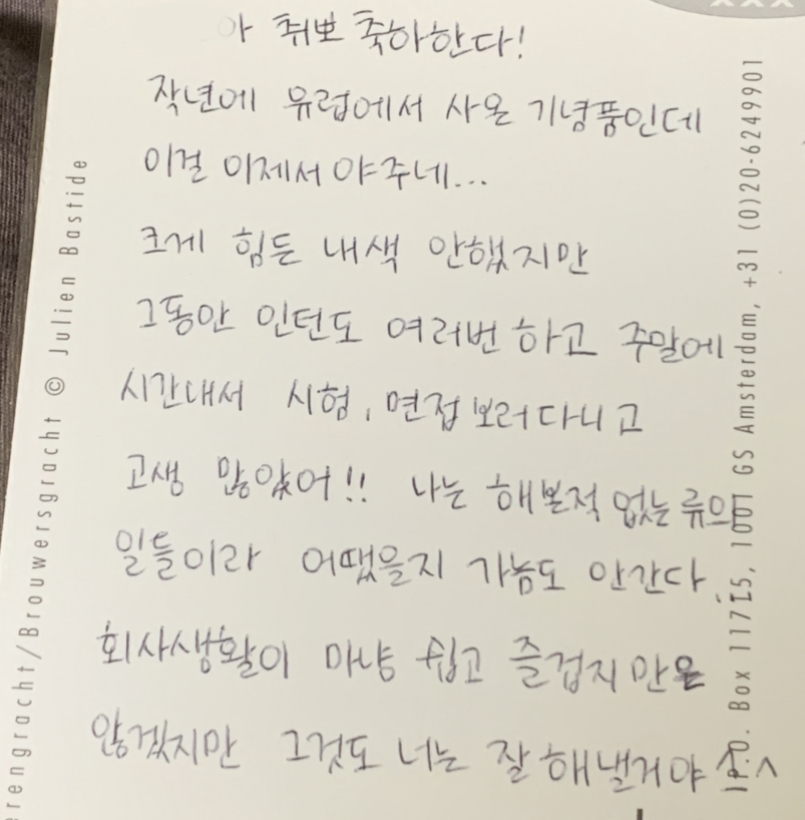 아 취뽀 축하한다!
작년에 유럽에서 사온 기념품인데
이걸 이제서야주네...
크게 힘든 내색 안했지만
그동안 인턴도 여러번 하고 주말에
시간내서 시험, 면접보러다니고
고생 많았어!! 나는 해본적 없는 류의
일들이라 어땠을지 가늠도 안간다.
회사생활이 마냥 쉽고 즐겁지만은
않겠지만 그것도 너는 잘 해낼거야
erengracht/Brouwersgracht © Julien Bastide
P.O. Box 11715, 1001 GS Amsterdam, +31 (0)20-6249901